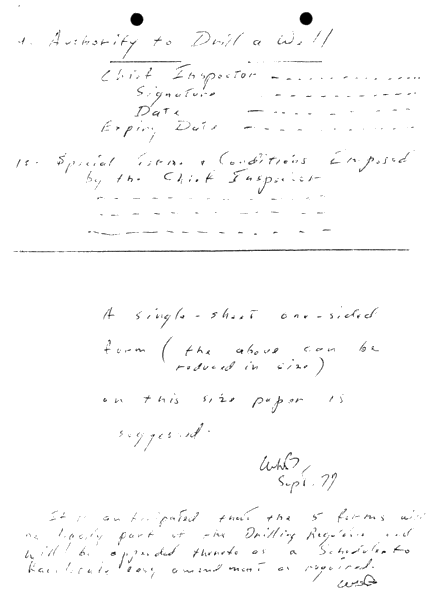 Authority to Drill a Well
Chief Inspector
Signature
Date
Expiry Date
15. Special Terms & Conditions Imposed
by the Chief Inspector
A single-sheet one-sided
form (the above can be
reduced in size)
on this size paper is
suggested.
Sept. 77
It is anticipated that the 5 forms will
part of the Drilling and
will be appended thereto as a Schedule to
facilitate easy amendment as required.